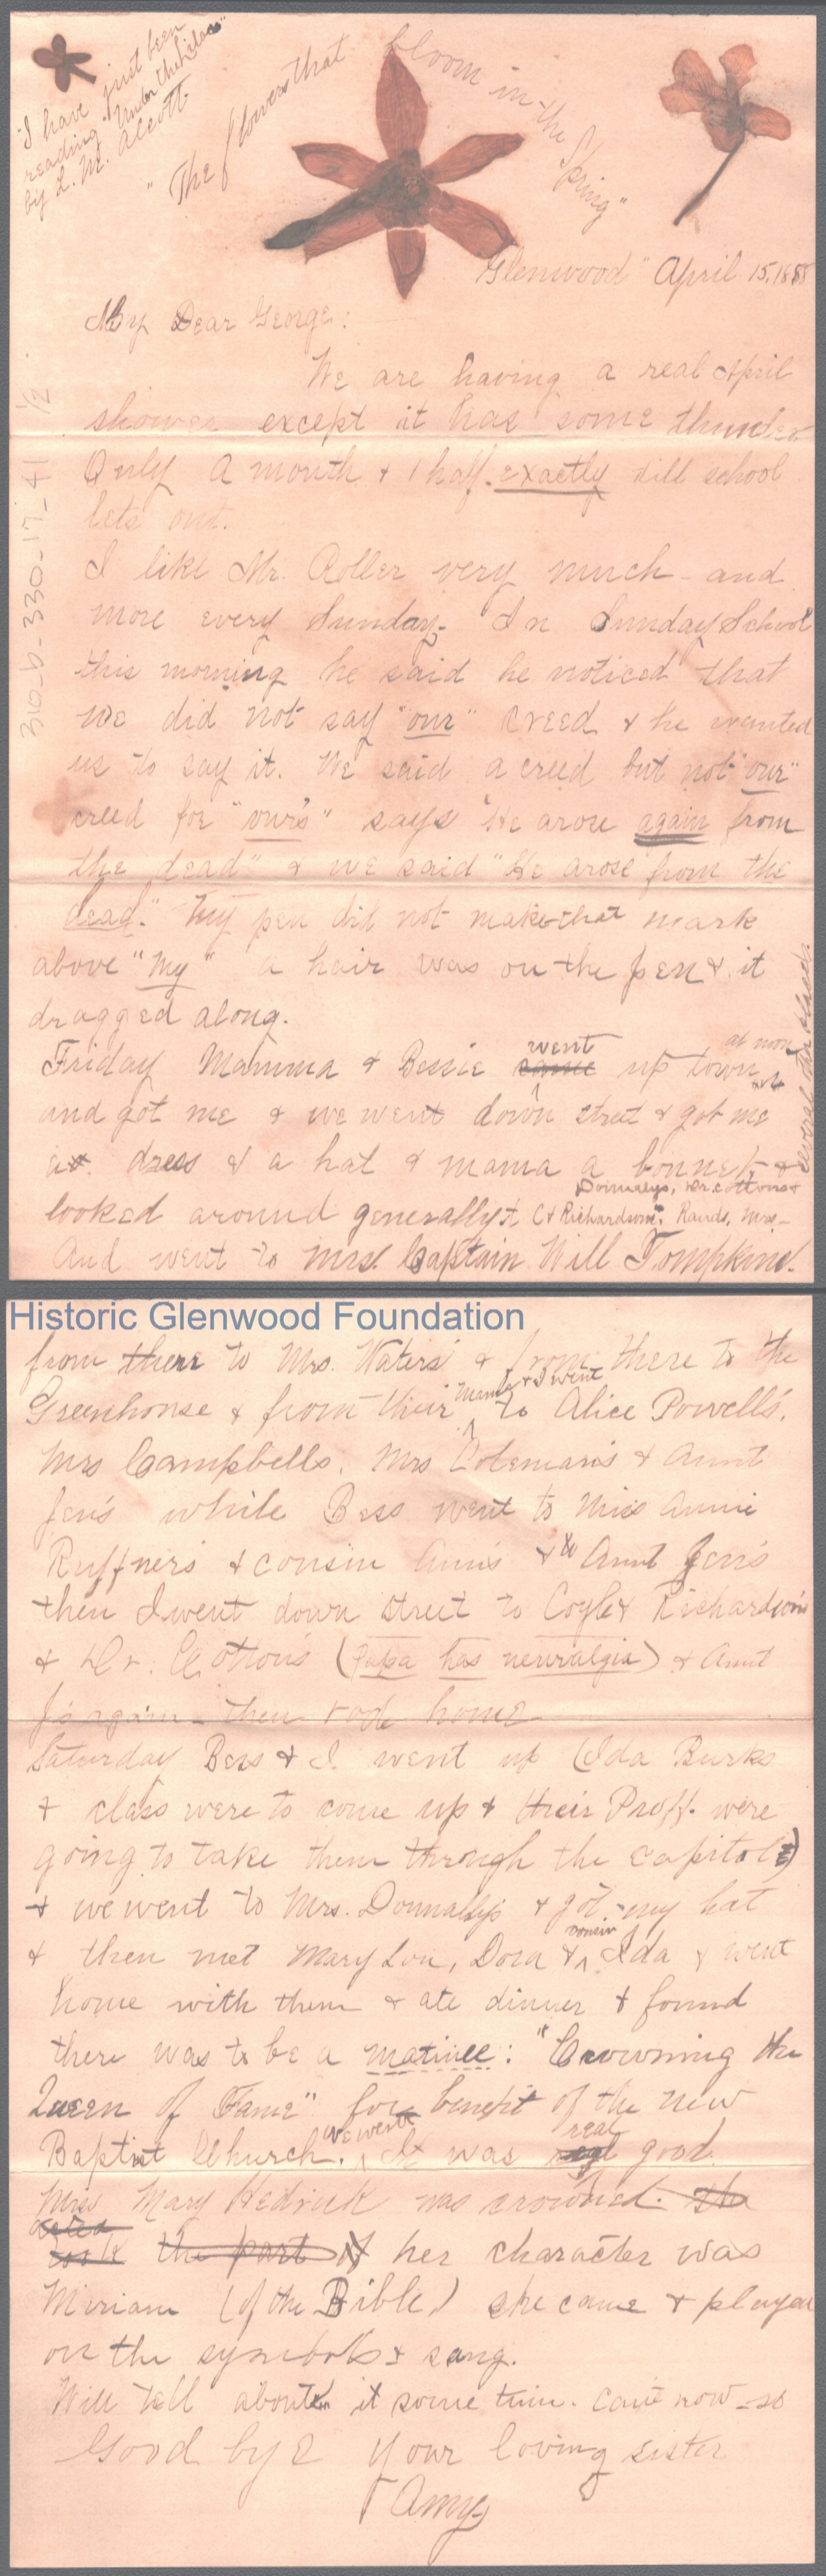 "I have just been
reading "Under the Lilacs"
by L. M. Alcott.
"The flowers that bloom in the Spring"
"Glenwood" April 15, 1888
My Dear George:
We are having a real April
shower except it has some thunder
Only a month & 1 half exactly till school
lets out.
I like Mr. Roller very much - and
more every Sunday. In Sunday School
this morning he said he noticed that
we did not say "our" creed & he wanted
us to say it. We said a creed but not "our"
creed for "ours" says "He arose again from
the dead" & we said "He arose from the
dead." My pen did not make that mark
above "My" a hair was on the pen & it
dragged along.
Friday Mamma & Bessie came went up town at noon
and got me & we went down street & got me
a dress & a hat & mama a bonnet &
several
looked around generally C & Richardson's, Rands, Mrs
Donnalys, Dr. Cottons &
And went to Mrs. Captain Will Tompkins.
310-b-330-17-41 1/2
Historic Glenwood Foundation
from there to Mrs. Waters' & from there to the
Greenhouse & from their Mama & I went to Alice Powells',
Mrs Campbells, Mrs Colemans & Aunt
Jen's while Bess went to Miss Annie
Ruffners' & cousin Ann's & to Aunt Jen's
then I went down street to Coyle & Richardson's
& Dr. Cottons (Papa has neuralgia) & Aunt
J's again - then rode home
Saturday Bess & I went up (Ida Burks
& class were to come up & their Proff. were
going to take them through the capitol)
& we went to Mrs. Donnallys & got my hat
& then met Mary Lou, Dora & cousin Ida & went
home with them & ate dinner & found
there was to be a matinee: "Crowning the
Queen of Fame" for benefit of the new
Baptist Church. we went It was real good.
Miss Mary Hedrick was crowned. the
acted
took the part of her character was
Miriam (of the Bible) she came & played
on the symbols & sang.
Will tell about it some time. can't now - so
Good bye Your loving sister
Amy